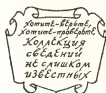 хотите-верьте,
хотите-проверьте
КОЛЛЕКЦИЯ
СВЕДЕНИЙ
НЕ СЛИШКОМ
ИЗВЕСТНЫХ